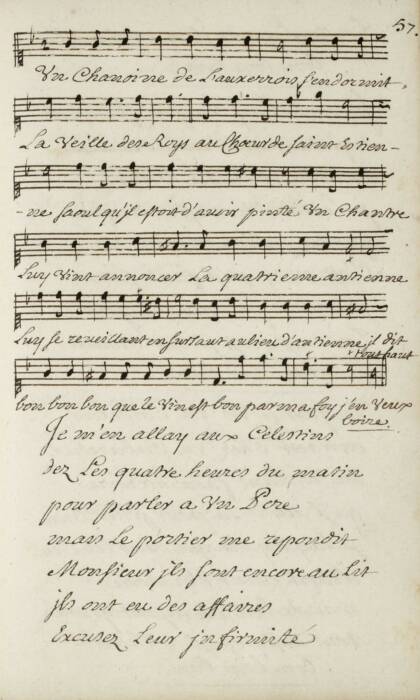 57.
Un Chanoine de Lauxerrois s'endormit,
La Veille des Roys au Chœur de saint Estien-
-ne saoul qu'il estoit d'avoir pinté Un Chantre
Luy Vint annoncer La quatrieme antienne
Luy se reveillant en sursaut au lieu d'antienne il dit
tout haut
bon bon bon que le Vin est bon par ma foy j'en Veux
boire.
Je m'en allay aux Celestins
dez Les quatre heures du matin
pour parler a Un Pere
mais Le portier me repondit
Monsieur jls sont encore au Lit
jls ont eu des affaires
Excusez Leur jnfirmité